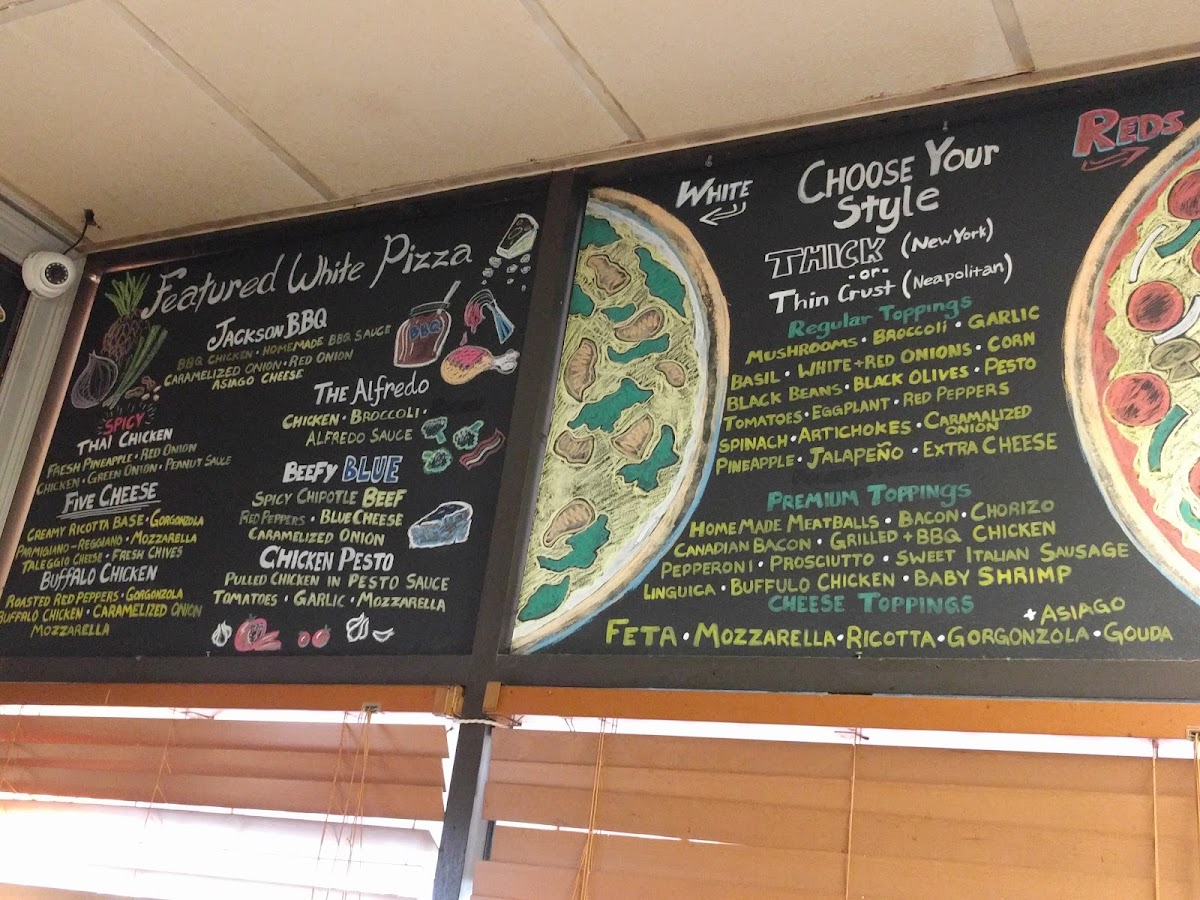 Featured White Pizza
JACKSON BBQ
BBQ CHICKEN · HOMEMADE BBQ SAUCE
CARAMELIZED ONION · RED ONION
ASIAGO CHEESE
BBQ
SPICY
THAI CHICKEN
FRESH PINEAPPLE · RED ONION
CHICKEN · GREEN ONION · PEANUT SAUCE
FIVE CHEESE
CREAMY RICOTTA BASE · GORGONZOLA
PARMIGIANO-REGGIANO · MOZZARELLA
TALEGGIO CHEESE · FRESH CHIVES
BUFFALO CHICKEN
ROASTED RED PEPPERS · GORGONZOLA
BUFFALO CHICKEN · CARAMELIZED ONION
MOZZARELLA
THE Alfredo
CHICKEN · BROCCOLI ·
ALFREDO SAUCE
BEEFY BLUE
SPICY CHIPOTLE BEEF
RED PEPPERS · BLUE CHEESE
CARAMELIZED ONION
CHICKEN PESTO
PULLED CHICKEN IN PESTO SAUCE
TOMATOES · GARLIC · MOZZARELLA
WHITE
CHOOSE YOUR
Style
THICK (NEW YORK)
-OR-
Thin CRUST (NEAPOLITAN)
REGULAR TOPPINGS
MUSHROOMS · BROCCOLI · GARLIC
BASIL · WHITE + RED ONIONS · CORN
BLACK BEANS · BLACK OLIVES · PESTO
TOMATOES · EGGPLANT · RED PEPPERS
SPINACH · ARTICHOKES · CARAMALIZED ONION
PINEAPPLE · JALAPEÑO · EXTRA CHEESE
PREMIUM TOPPINGS
HOMEMADE MEATBALLS · BACON · CHORIZO
CANADIAN BACON · GRILLED + BBQ CHICKEN
PEPPERONI · PROSCIUTTO · SWEET ITALIAN SAUSAGE
LINGUICA · BUFFULO CHICKEN · BABY SHRIMP
CHEESE TOPPINGS
+ ASIAGO
FETA · MOZZARELLA · RICOTTA · GORGONZOLA · GOUDA
REDS